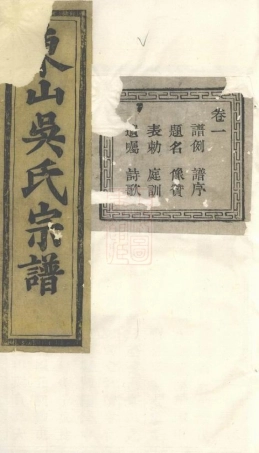 卷一
譜例 譜序
題名 像贊
表勅 庭訓
遺囑 詩歌
東山吳氏宗譜